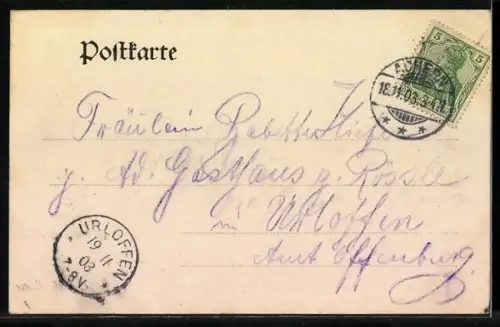 Postkarte
5 5
ACHERN
18.11.03.
Fräulein Babette Kiefer
z. Ad. Gasthaus z. Rössle
in Urloffen
Amt Offenburg
URLOFFEN
19 11
03
7-8V.